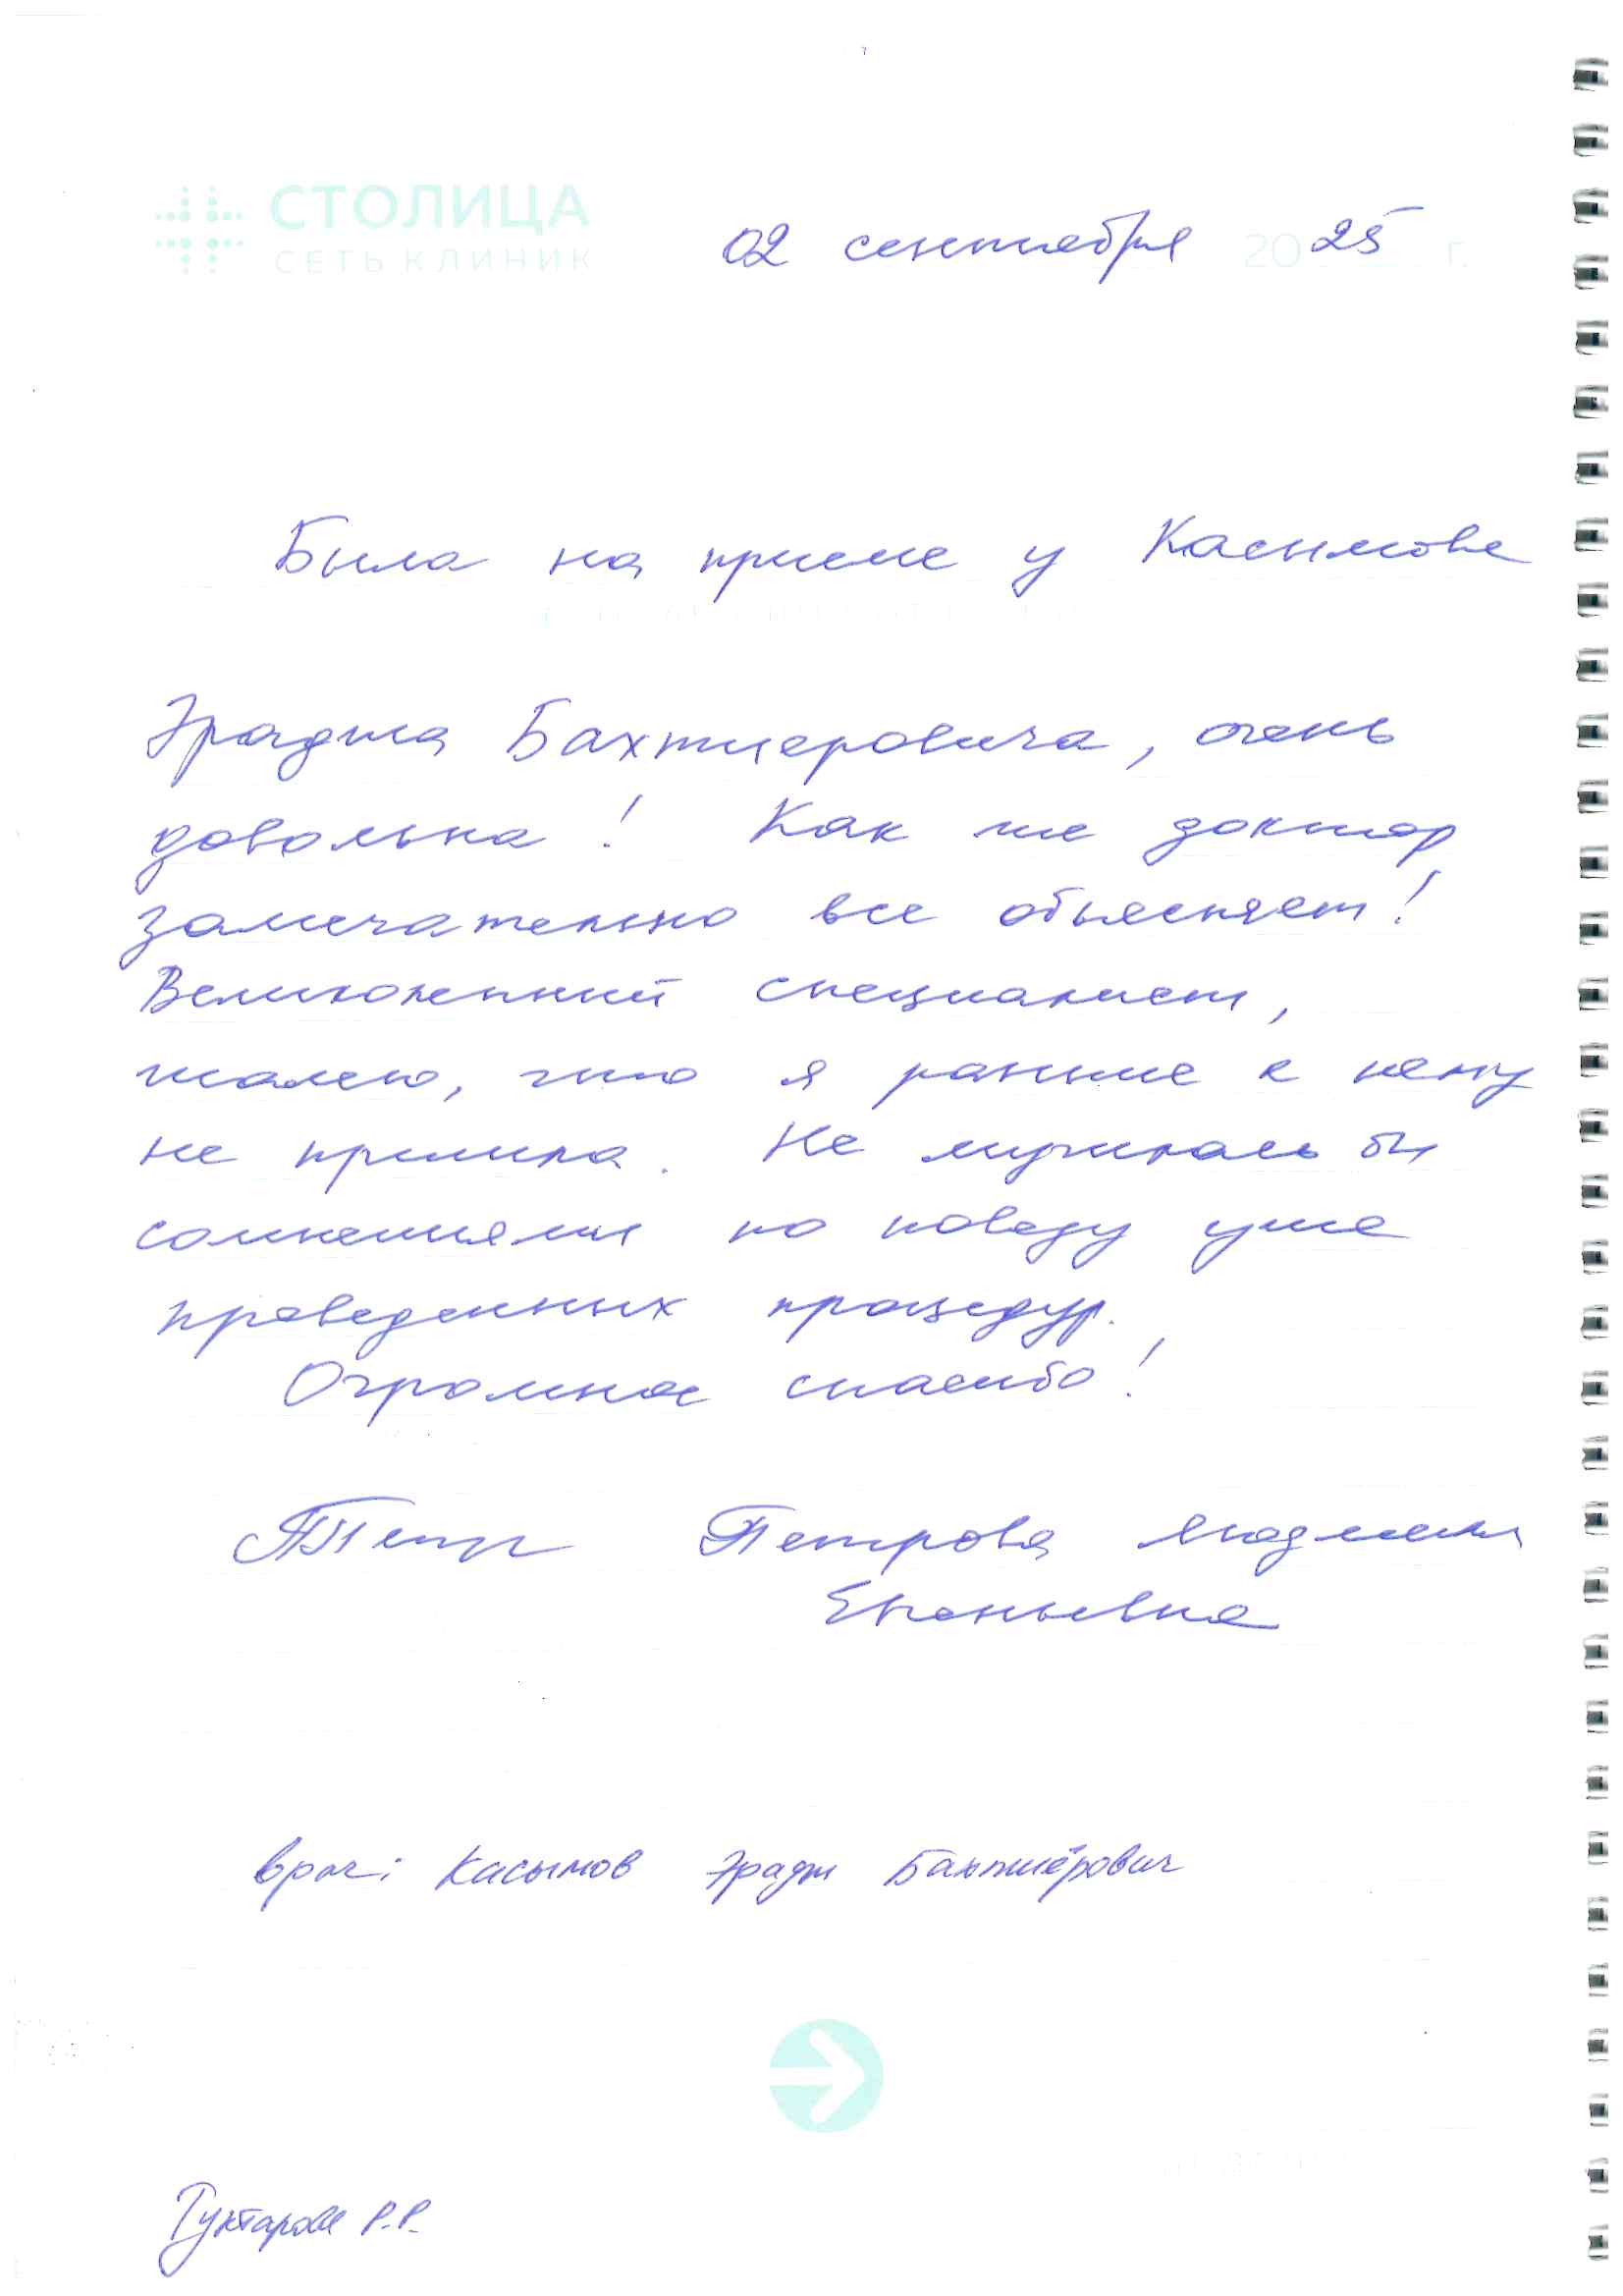 СТОЛИЦА
СЕТЬ КЛИНИК
02 сентября 2025 г.
Была на приеме у Касымова
Эраджа Бахтиеровича, очень
довольна! Как же доктор
замечательно все объясняет!
Великолепный специалист,
жалею, что я раньше к нему
не пришла. Не мучилась бы
сомнениями по поводу уже
проведенных процедур.
Огромное спасибо!
Петрова Людмила
Евгеньевна
врач: Касымов Эрадж Бахтиёрович
Р.Р.